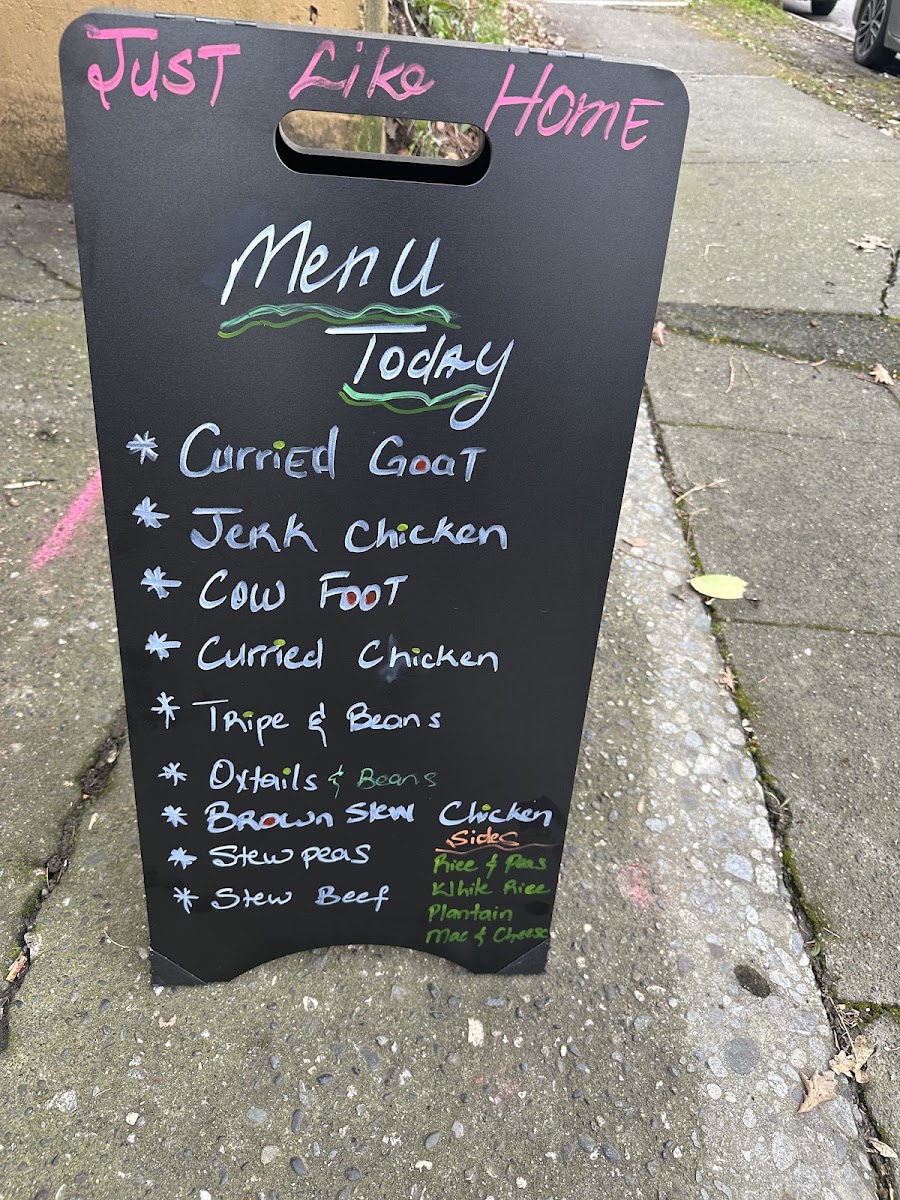 JUST Like HOME
Menu
Today
* Curried Goat
* Jerk Chicken
* Cow Foot
* Curried Chicken
* Tripe & Beans
* Oxtails & Beans
* Brown Stew Chicken
* Stew peas
* Stew Beef
Sides
Rice & Peas
White Rice
Plantain
Mac & Cheese